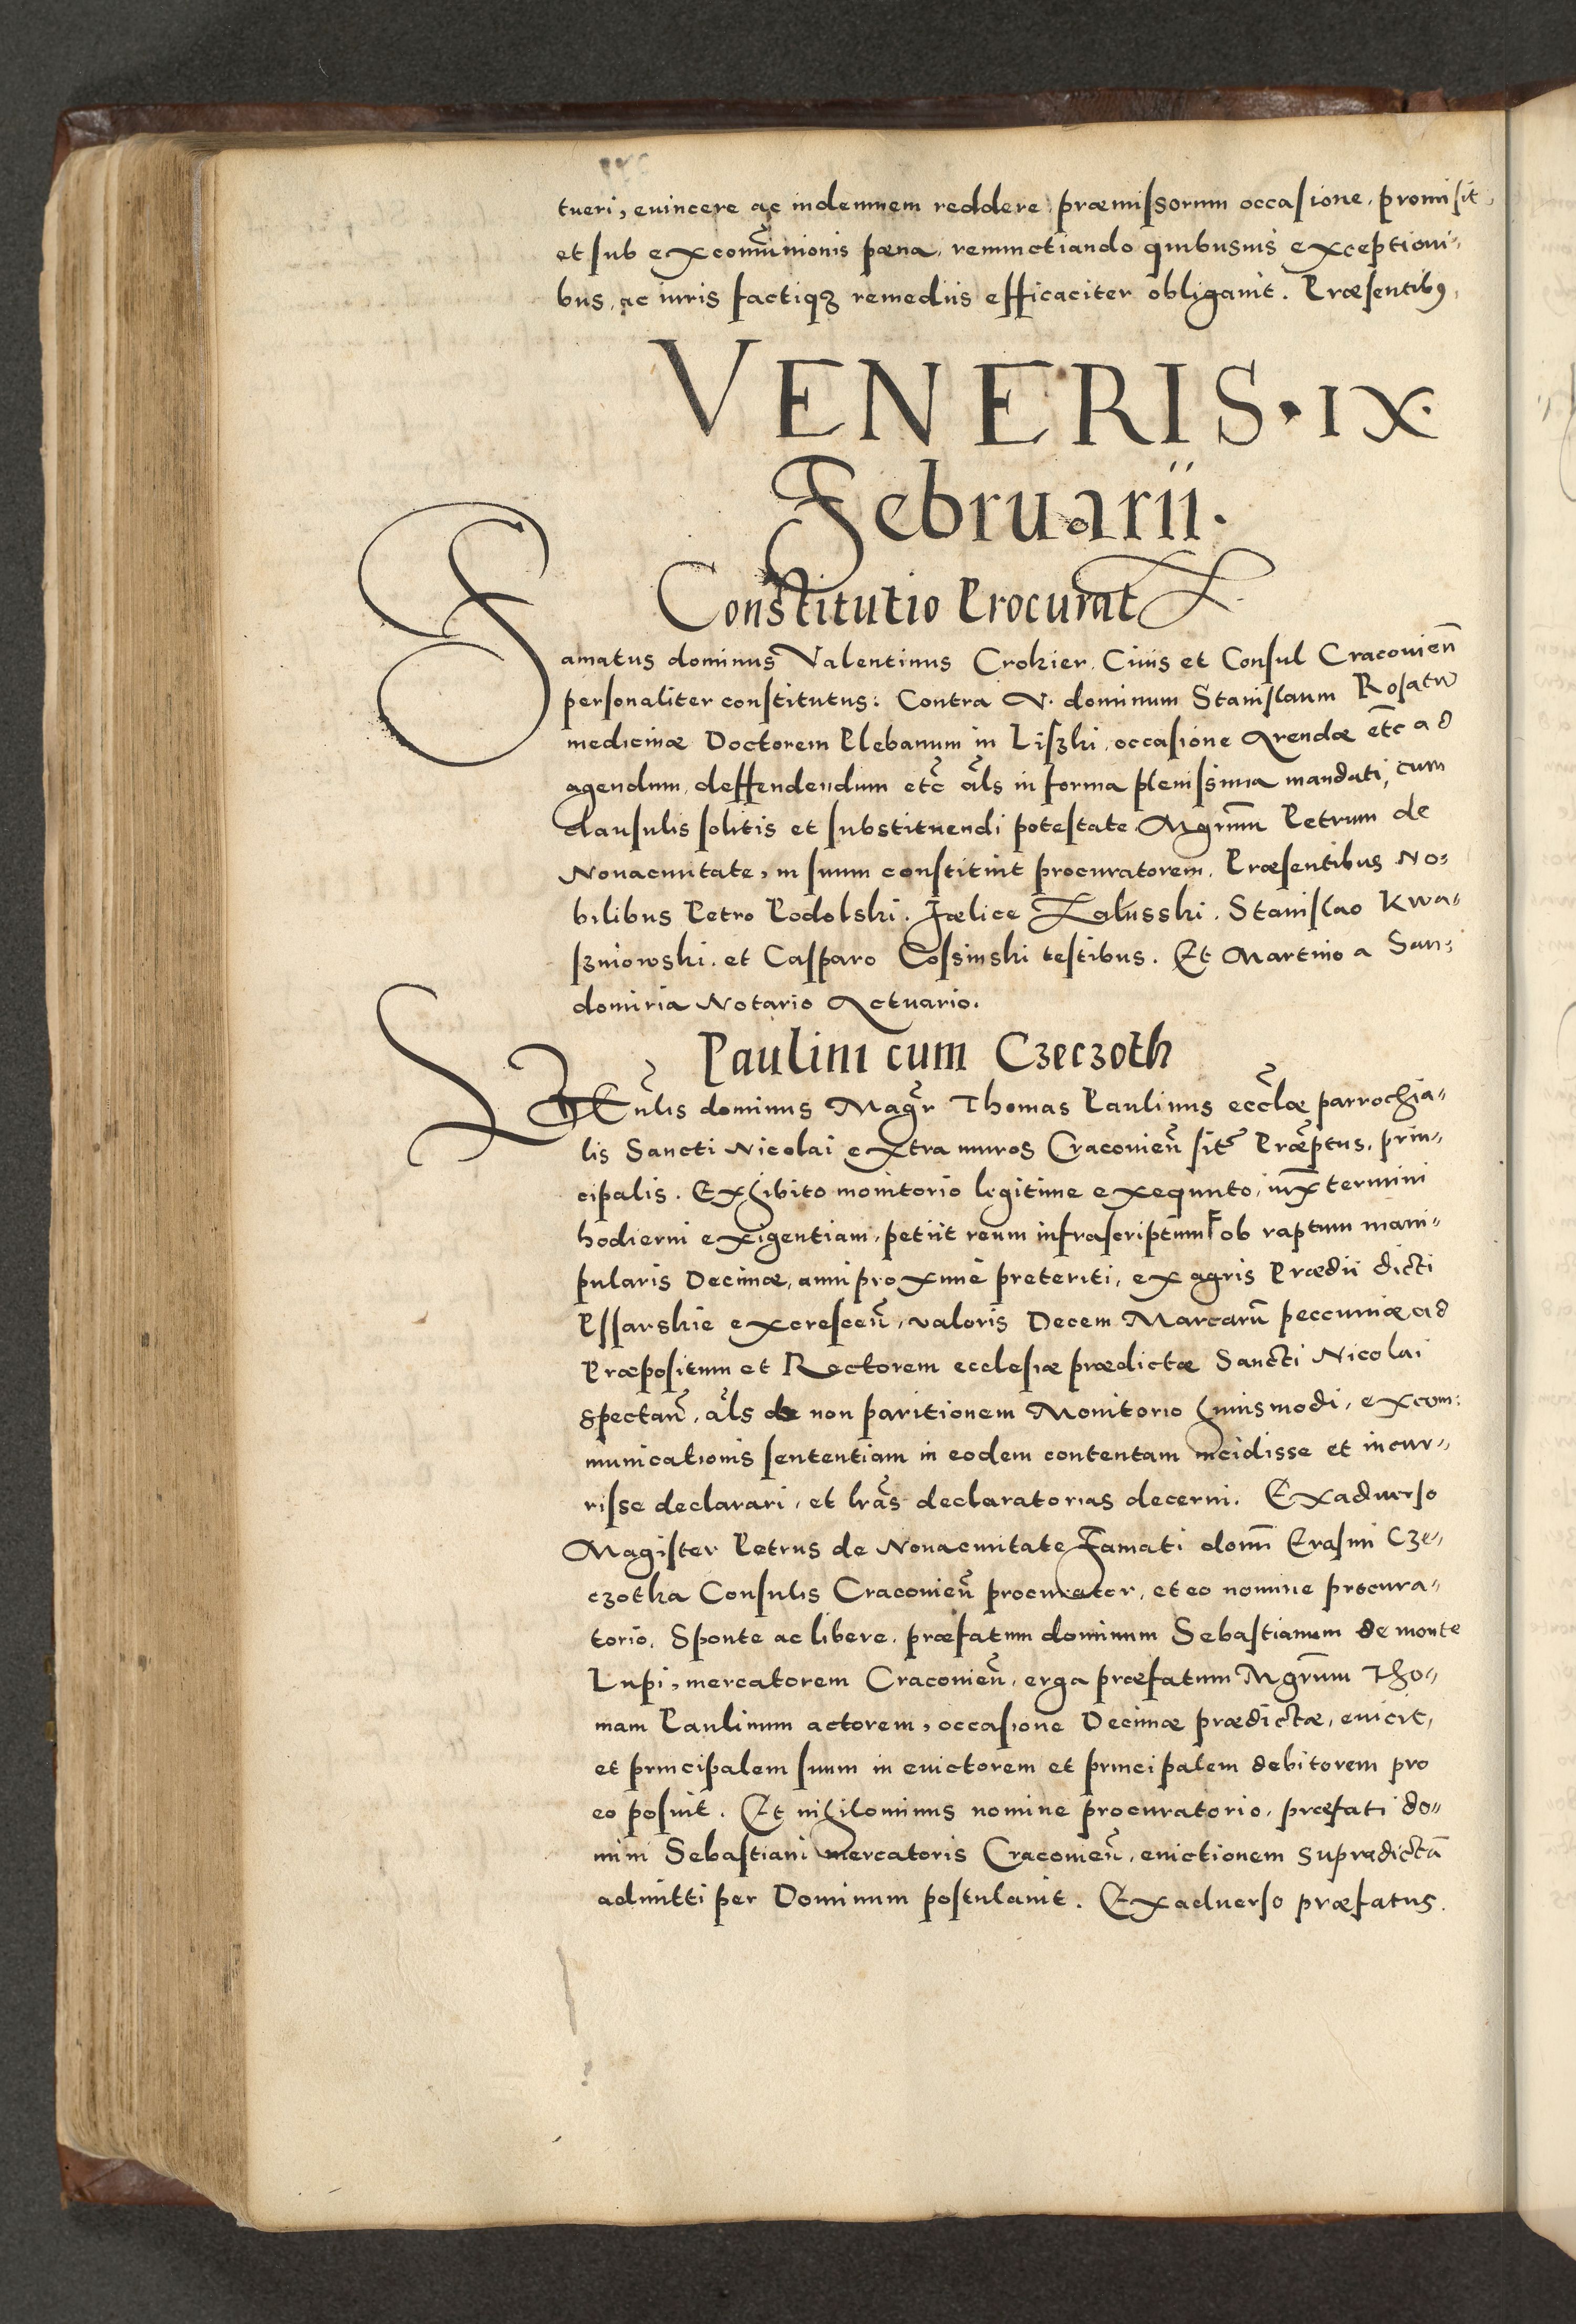 tueri, euincere ac indemnem reddere præmissorum occasione, promisit,
et sub excom̃unionis pœna, renunctiando quibusuis exceptioni-
bus, ac iuris factiqꝫ remediis efficaciter obligauit. Præsentibꝰ,
VENERIS · IX ·
Februarii.
Constitutio Procurat
Famatus dominus Valentinus Crokier, Ciuis et Consul Cracouien̄
personaliter constitutus: Contra V. dominum Stanislaum Rosatū
medicinæ Doctorem Plebanum in Liszki, occasione Arendæ etc̄ ad
agendum, deffendendum etc̃ al̃s in forma plenissima mandati, cum
clausulis solitis et substituendi potestate Mgrūm Petrum de
Nouaciuitate, in suum constituit procuratorem. Præsentibus No-
bilibus Petro Podolski. Fælice Zalusski. Stanislao Kwa-
szniowski. et Casparo Cossinski testibus. Et Martino a San-
domiria Notario Actuario.
Paulini cum Czeczoth
Veñlis dominus Mag̃r Thomas Paulinus ecc̃læ parrochia-
lis Sancti Nicolai extra muros Cracouien̄ sit̃ Præ̃ptus, prin-
cipalis. Exhibito monitorio legitime exequuto, iux̄ termini
hodierni exigentiam, petiit reum infrascriptum ob raptum mani-
pularis Decimæ, anni proxime preteriti, ex agris Prædii dicti
Pssarskie excrescen̄, valoris Decem Marcarū peccuniæ ad
Præpositum et Rectorem ecclesiæ prædictæ Sancti Nicolai
spectan̄, al̃s de non paritionem Monitorio huiusmodi, excom-
municationis sententiam in eodem contentam incidisse et incur-
risse declarari, et lr̃as declaratorias decerni. Exaduerso
Magister Petrus de Nouaciuitate Famati domī Erasmi Cze-
czotka Consulis Cracouien̄ procurator, et eo nomine procura-
torio. Sponte ac libere, præfatum dominum Sebastianum de monte
Lupi, mercatorem Cracouien̄, erga præfatum Mgrūm Tho-
mam Paulinum actorem, occasione Decimæ prædictæ, euicit,
et principalem suum in euictorem et principalem debitorem pro
eo posuit. Et nihilominus nomine procuratorio, præfati do-
mini Sebastiani mercatoris Cracouien̄, euictionem supradictā
admitti per Dominum postulauit. Exaduerso præfatus.